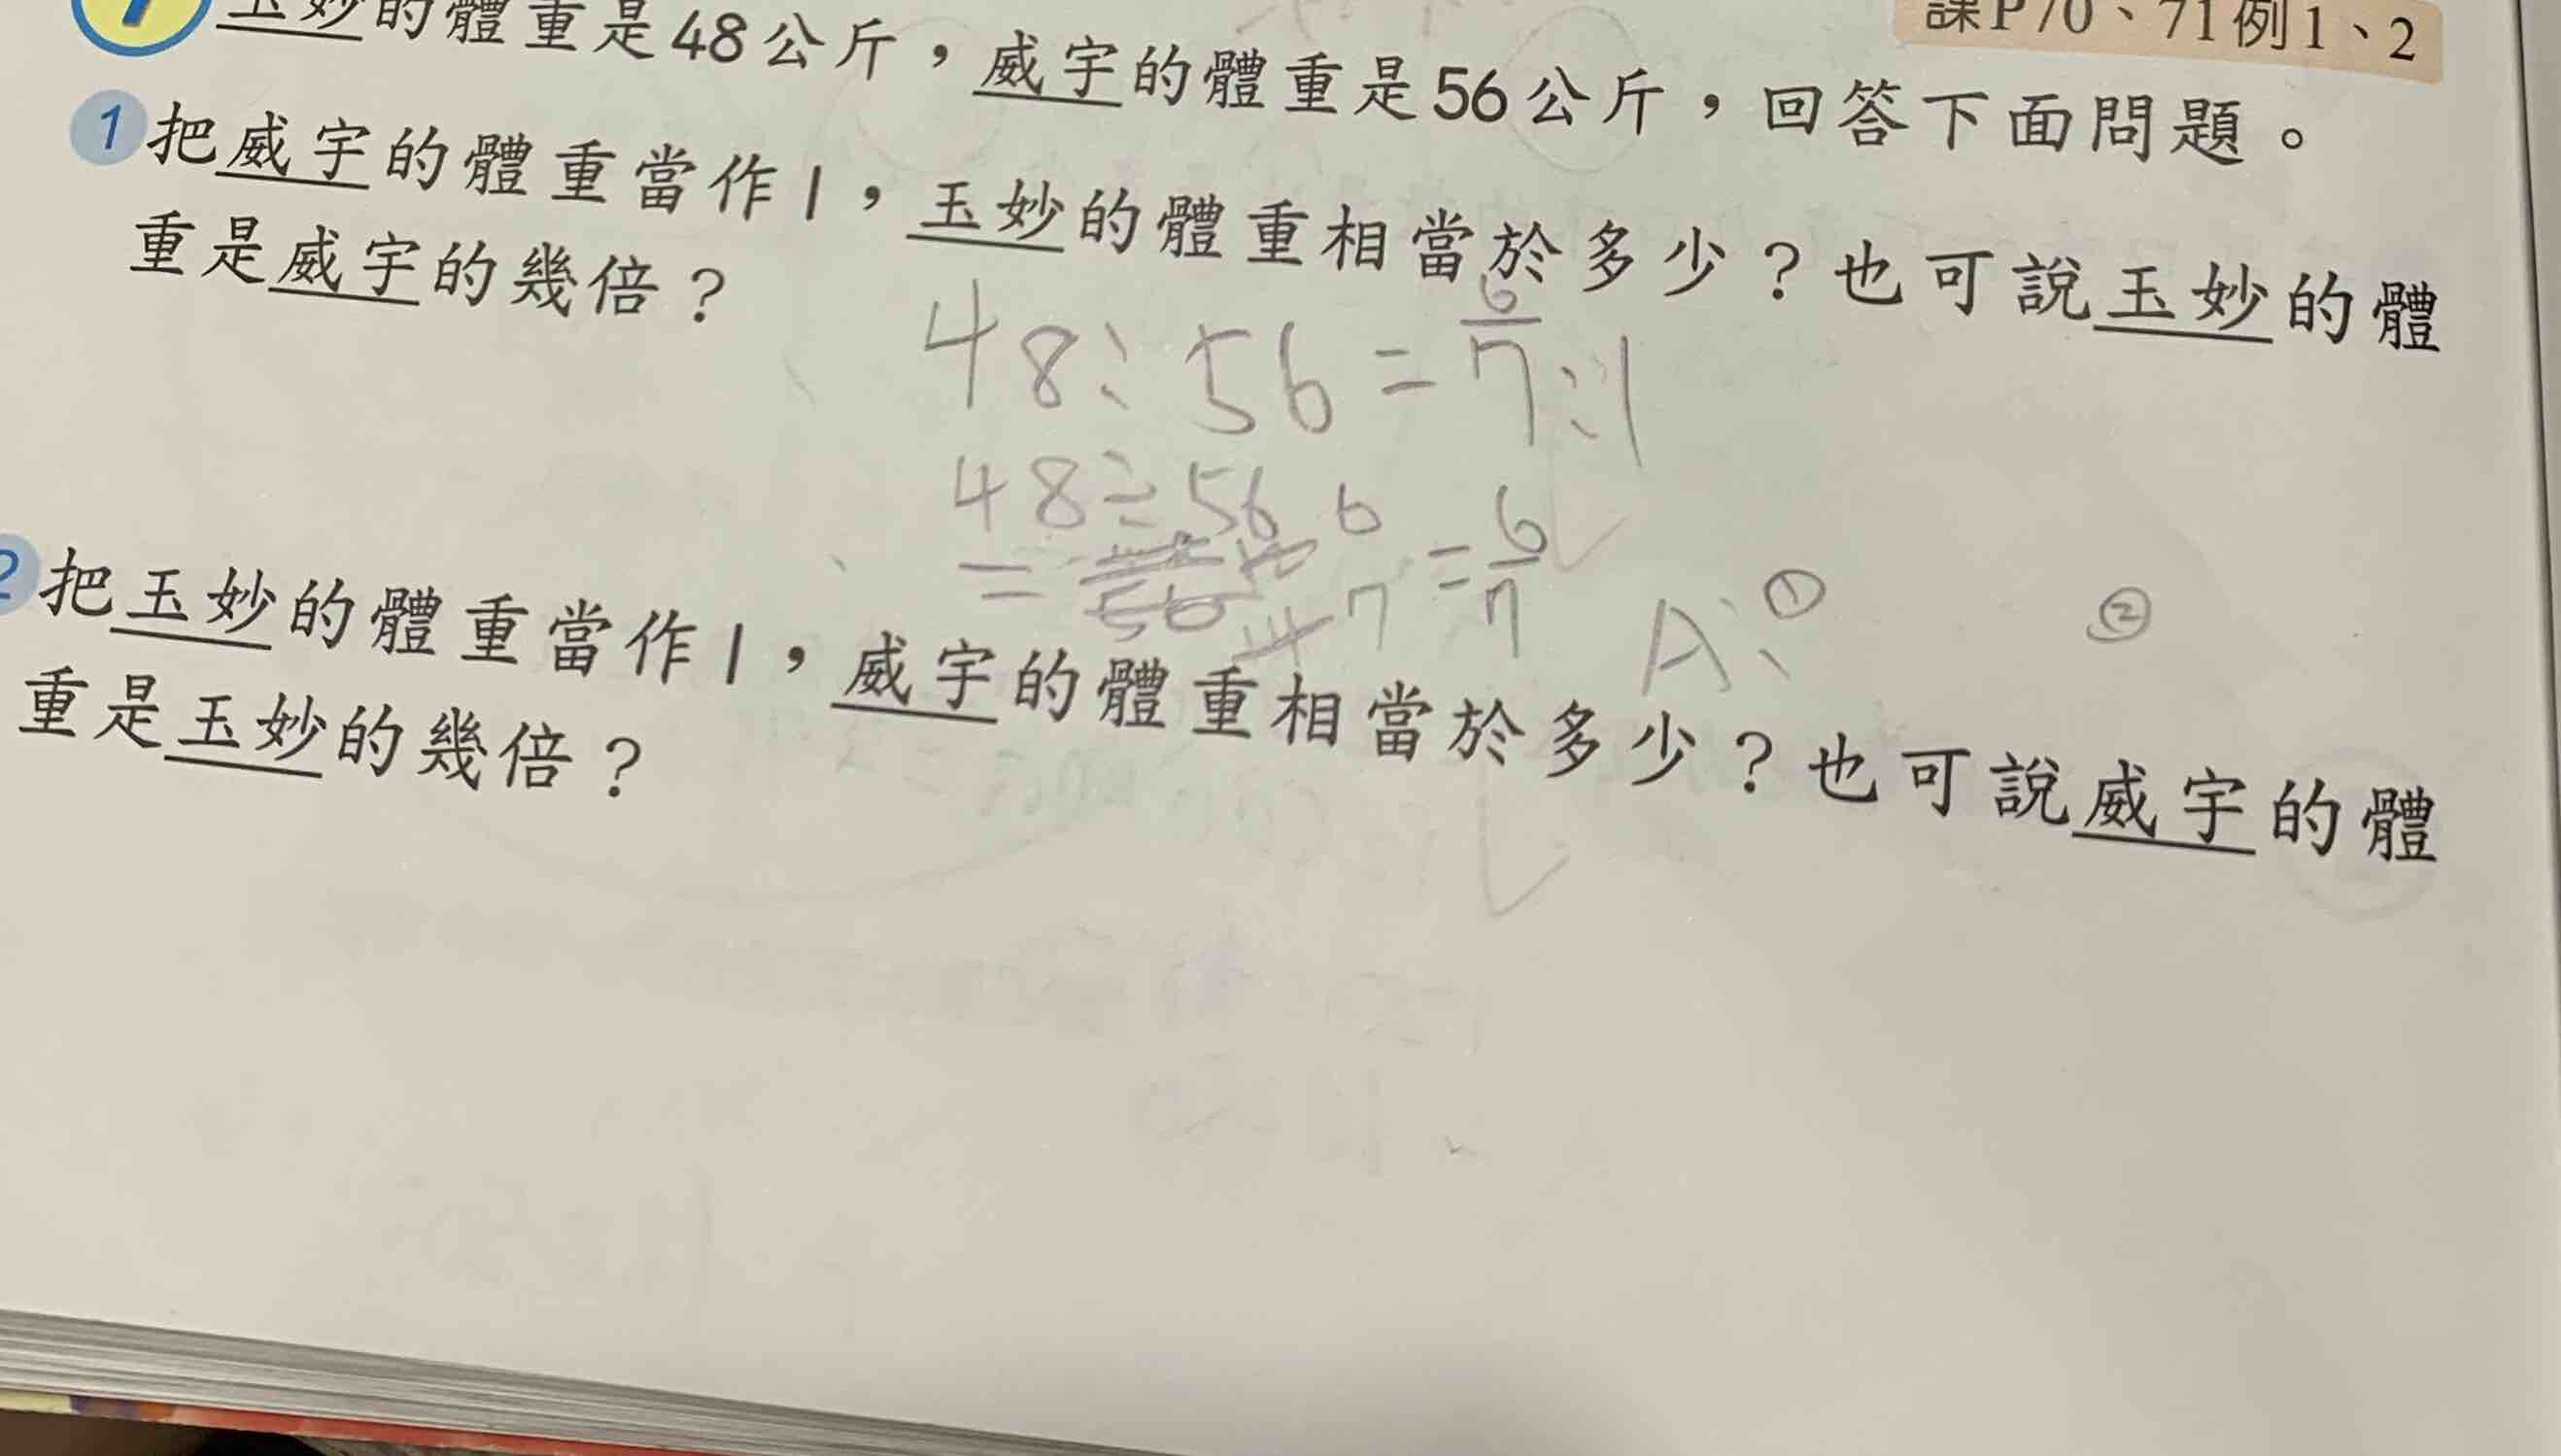 課P70、71例1、2
玉妙的體重是48公斤，威宇的體重是56公斤，回答下面問題。
1 把威宇的體重當作1，玉妙的體重相當於多少？也可說玉妙的體
重是威宇的幾倍？
48：56=6/7：1
48÷56
= 6 7 = 6/7
A：① ②
2 把玉妙的體重當作1，威宇的體重相當於多少？也可說威宇的體
重是玉妙的幾倍？